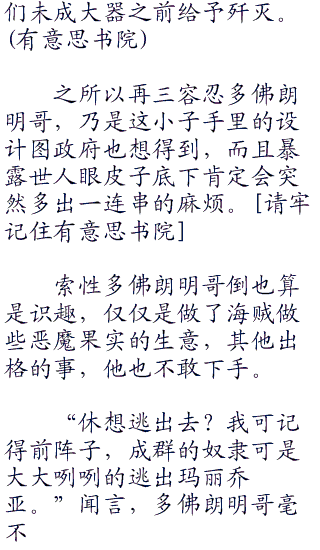 们未成大器之前给予歼灭。
(有意思书院)
之所以再三容忍多佛朗
明哥，乃是这小子手里的设
计图政府也想得到，而且暴
露世人眼皮子底下肯定会突
然多出一连串的麻烦。[请牢
记住有意思书院]
索性多佛朗明哥倒也算
是识趣，仅仅是做了海贼做
些恶魔果实的生意，其他出
格的事，他也不敢下手。
“休想逃出去？我可记
得前阵子，成群的奴隶可是
大大咧咧的逃出玛丽乔
亚。”闻言，多佛朗明哥毫
不